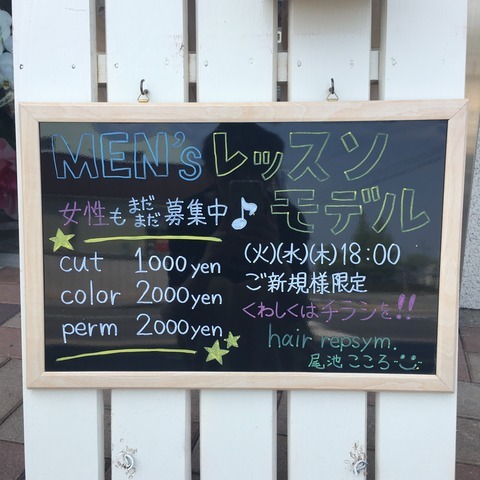 MEN'sレッスン
モデル
女性もまだまだ募集中♪
cut 1000yen
color 2000yen
perm 2000yen
(火)(水)(木)18:00
ご新規様限定
くわしくはチラシを!!
hair repsym.
尾池こころ